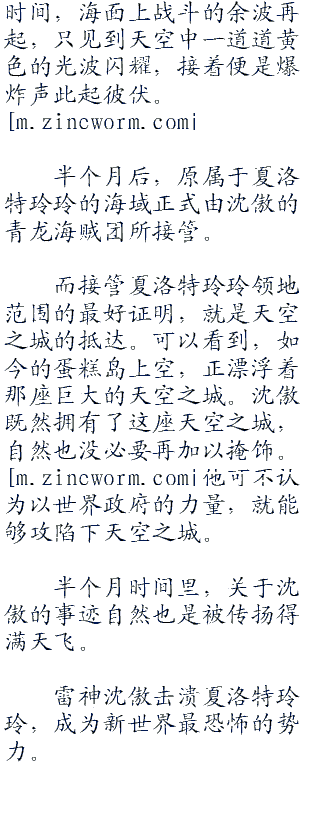 时间，海面上战斗的余波再
起，只见到天空中一道道黄
色的光波闪耀，接着便是爆
炸声此起彼伏。
[m.zincworm.com]
半个月后，原属于夏洛
特玲玲的海域正式由沈傲的
青龙海贼团所接管。
而接管夏洛特玲玲领地
范围的最好证明，就是天空
之城的抵达。可以看到，如
今的蛋糕岛上空，正漂浮着
那座巨大的天空之城。沈傲
既然拥有了这座天空之城，
自然也没必要再加以掩饰。
[m.zincworm.com]他可不认
为以世界政府的力量，就能
够攻陷下天空之城。
半个月时间里，关于沈
傲的事迹自然也是被传扬得
满天飞。
雷神沈傲击溃夏洛特玲
玲，成为新世界最恐怖的势
力。